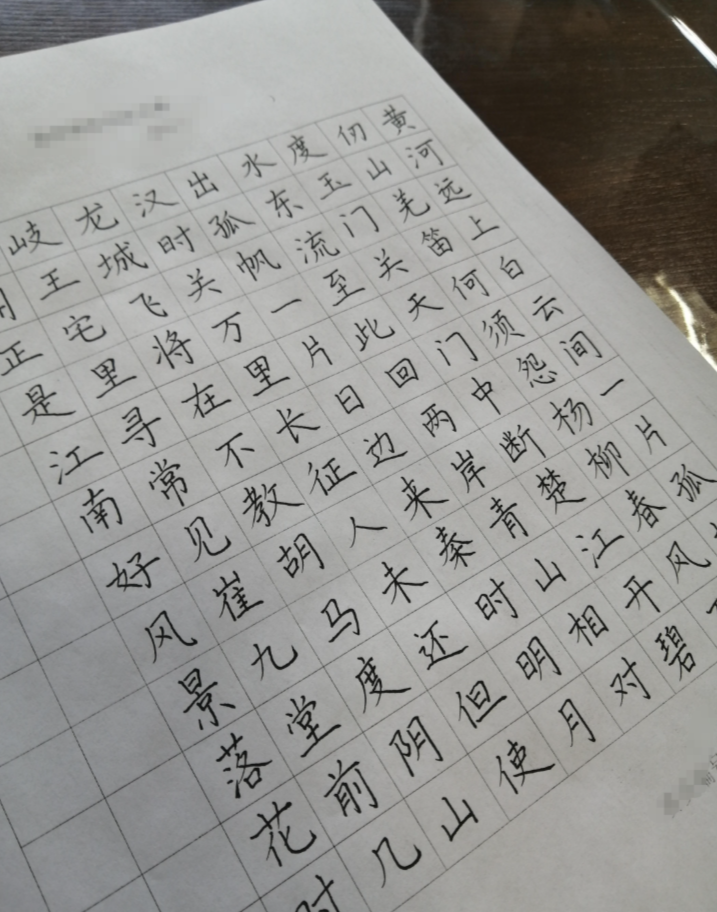 黄河远上白云间一片孤
仞山羌笛何须怨杨柳春风
度玉门关天门中断楚江开碧
水东流至此回两岸青山相对
出孤帆一片日边来秦时明月
汉时关万里长征人未还但使
龙城飞将在不教胡马度阴山
岐王宅里寻常见崔九堂前几
正是江南好风景落花时